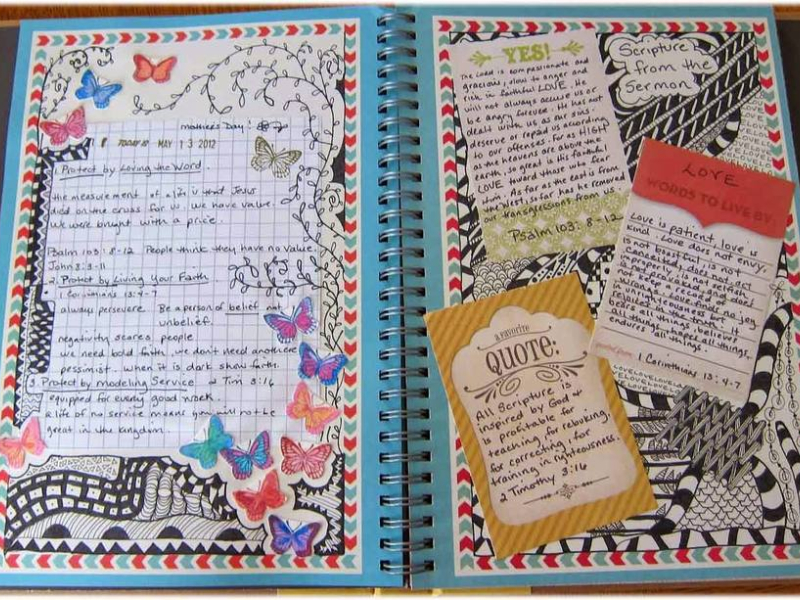 mothers Day!
TODAY IS MAY 13 2012
1. Protect by Loving the Word.
the measurement of a life is that Jesus
died on the cross for us. We have value.
We were bought with a price.
Psalm 103:8-12 People think they have no value.
John 3:3-11
2. Protect by Living Your Faith.
1 Corinthians 13:4-7
always persevere. Be a person of belief not
unbelief.
negativity scares people
we need bold faith, we don't need another
pessimist... when it is dark show faith.
3. Protect by modeling Service 2 Tim 3:16
equipped for every good work.
a life of no service means you will not be
great in the kingdom.
Scripture
from the
Sermon
YES!
The Lord is compassionate and
gracious, slow to anger and
rich in faithful LOVE. He
will not always accuse us or
be angry forever. He has not
dealt with us as our sins
deserve or repaid us according
to our offenses. For as HIGH
as the heavens are above the
earth, so great is His faithful
LOVE toward those who fear
Him. As far as the east is from
the west, so far has he removed
our transgressions from us.
Psalm 103:8-12
LOVE
WORDS TO LIVE BY
Love is patient, love is
kind. Love does not envy,
is not boastful, is not
conceited, does not act
improperly, is not selfish
is not provoked and does
not keep a record of
wrongs. Love finds no joy
in unrighteousness but
rejoices in the truth. It
bears all things, believes
all things, hopes all things,
endures all things.
1 Corinthians 13:4-7
a favorite
QUOTE:
All Scripture is
inspired by God &
is profitable for
teaching, for rebuking,
for correcting, for
training in righteousness.
2 Timothy 3:16